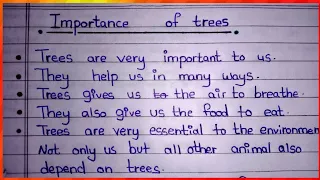 Importance of trees
Trees are very important to us.
They help us in many ways.
Trees gives us to the air to breathe.
They also give us the food to eat.
Trees are very essential to the environmen
Not only us but all other animal also
depend on trees.